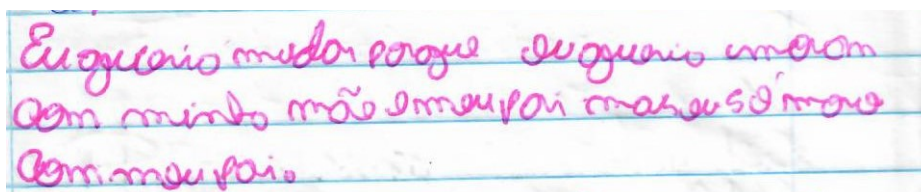 Eu queria mudar porque eu queria morar
com minha mãe e meu pai mas eu só moro
com meu pai.